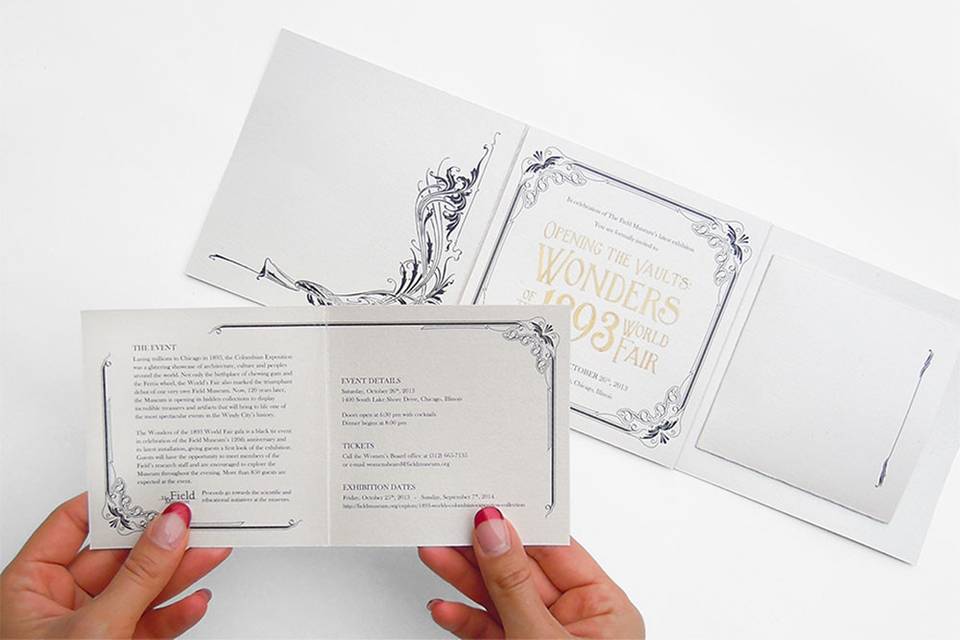 In celebration of The Field Museum's latest exhibition,
You are formally invited to
OPENING THE VAULTS:
WONDERS
OF 1893 WORLD
FAIR
OCTOBER 26th, 2013
Chicago, Illinois
THE EVENT
Luring millions to Chicago in 1893, the Columbian Exposition
was a glittering showcase of architecture, culture and peoples
around the world. Not only the birthplace of chewing gum and
the Ferris wheel, the World's Fair also marked the triumphant
debut of our very own Field Museum. Now, 120 years later,
the Museum is opening its hidden collections to display
incredible treasures and artifacts that will bring to life one of
the most spectacular events in the Windy City's history.
The Wonders of the 1893 World Fair gala is a black tie event
in celebration of the Field Museum's 120th anniversary and
its latest installation, giving guests a first look of the exhibition.
Guests will have the opportunity to meet members of the
Field's research staff and are encouraged to explore the
Museum throughout the evening. More than 850 guests are
expected at the event.
The Field
Proceeds go towards the scientific and
educational initiatives at the museum.
EVENT DETAILS
Saturday, October 26th, 2013
1400 South Lake Shore Drive, Chicago, Illinois
Doors open at 6:30 pm with cocktails
Dinner begins at 8:00 pm
TICKETS
Call the Women's Board office at (312) 665-7135
or e-mail womensboard@fieldmuseum.org
EXHIBITION DATES
Friday, October 25th, 2013 - Sunday, September 7th, 2014